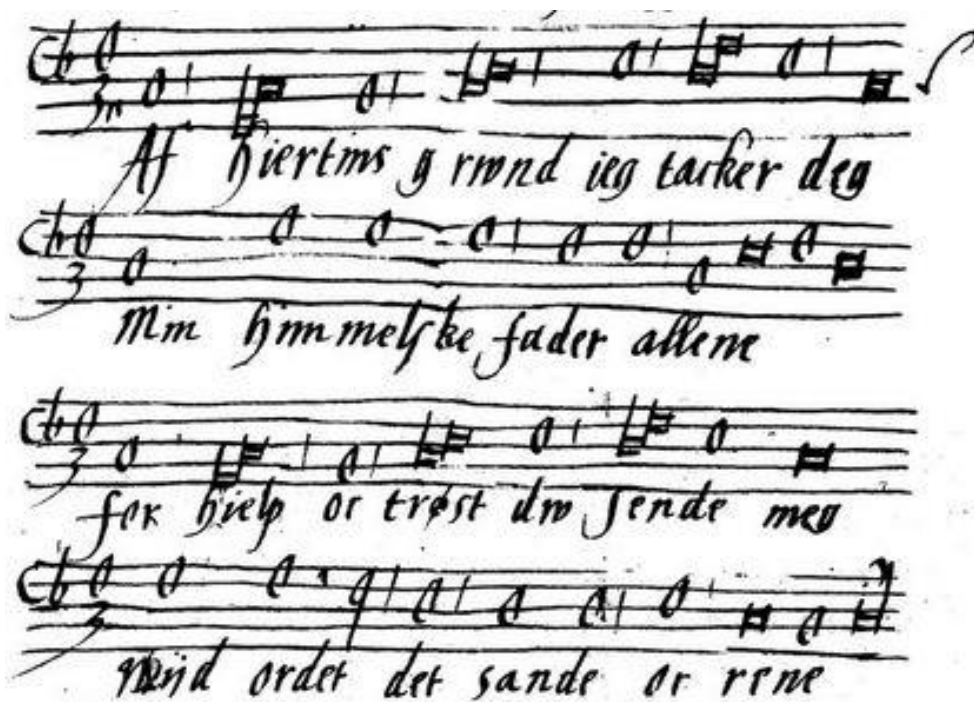 Af hiertins grund ieg tacker deg
Min himmelske fader allene
for hielp oc trøst du sende meg
Wijd ordet det sande oc rene